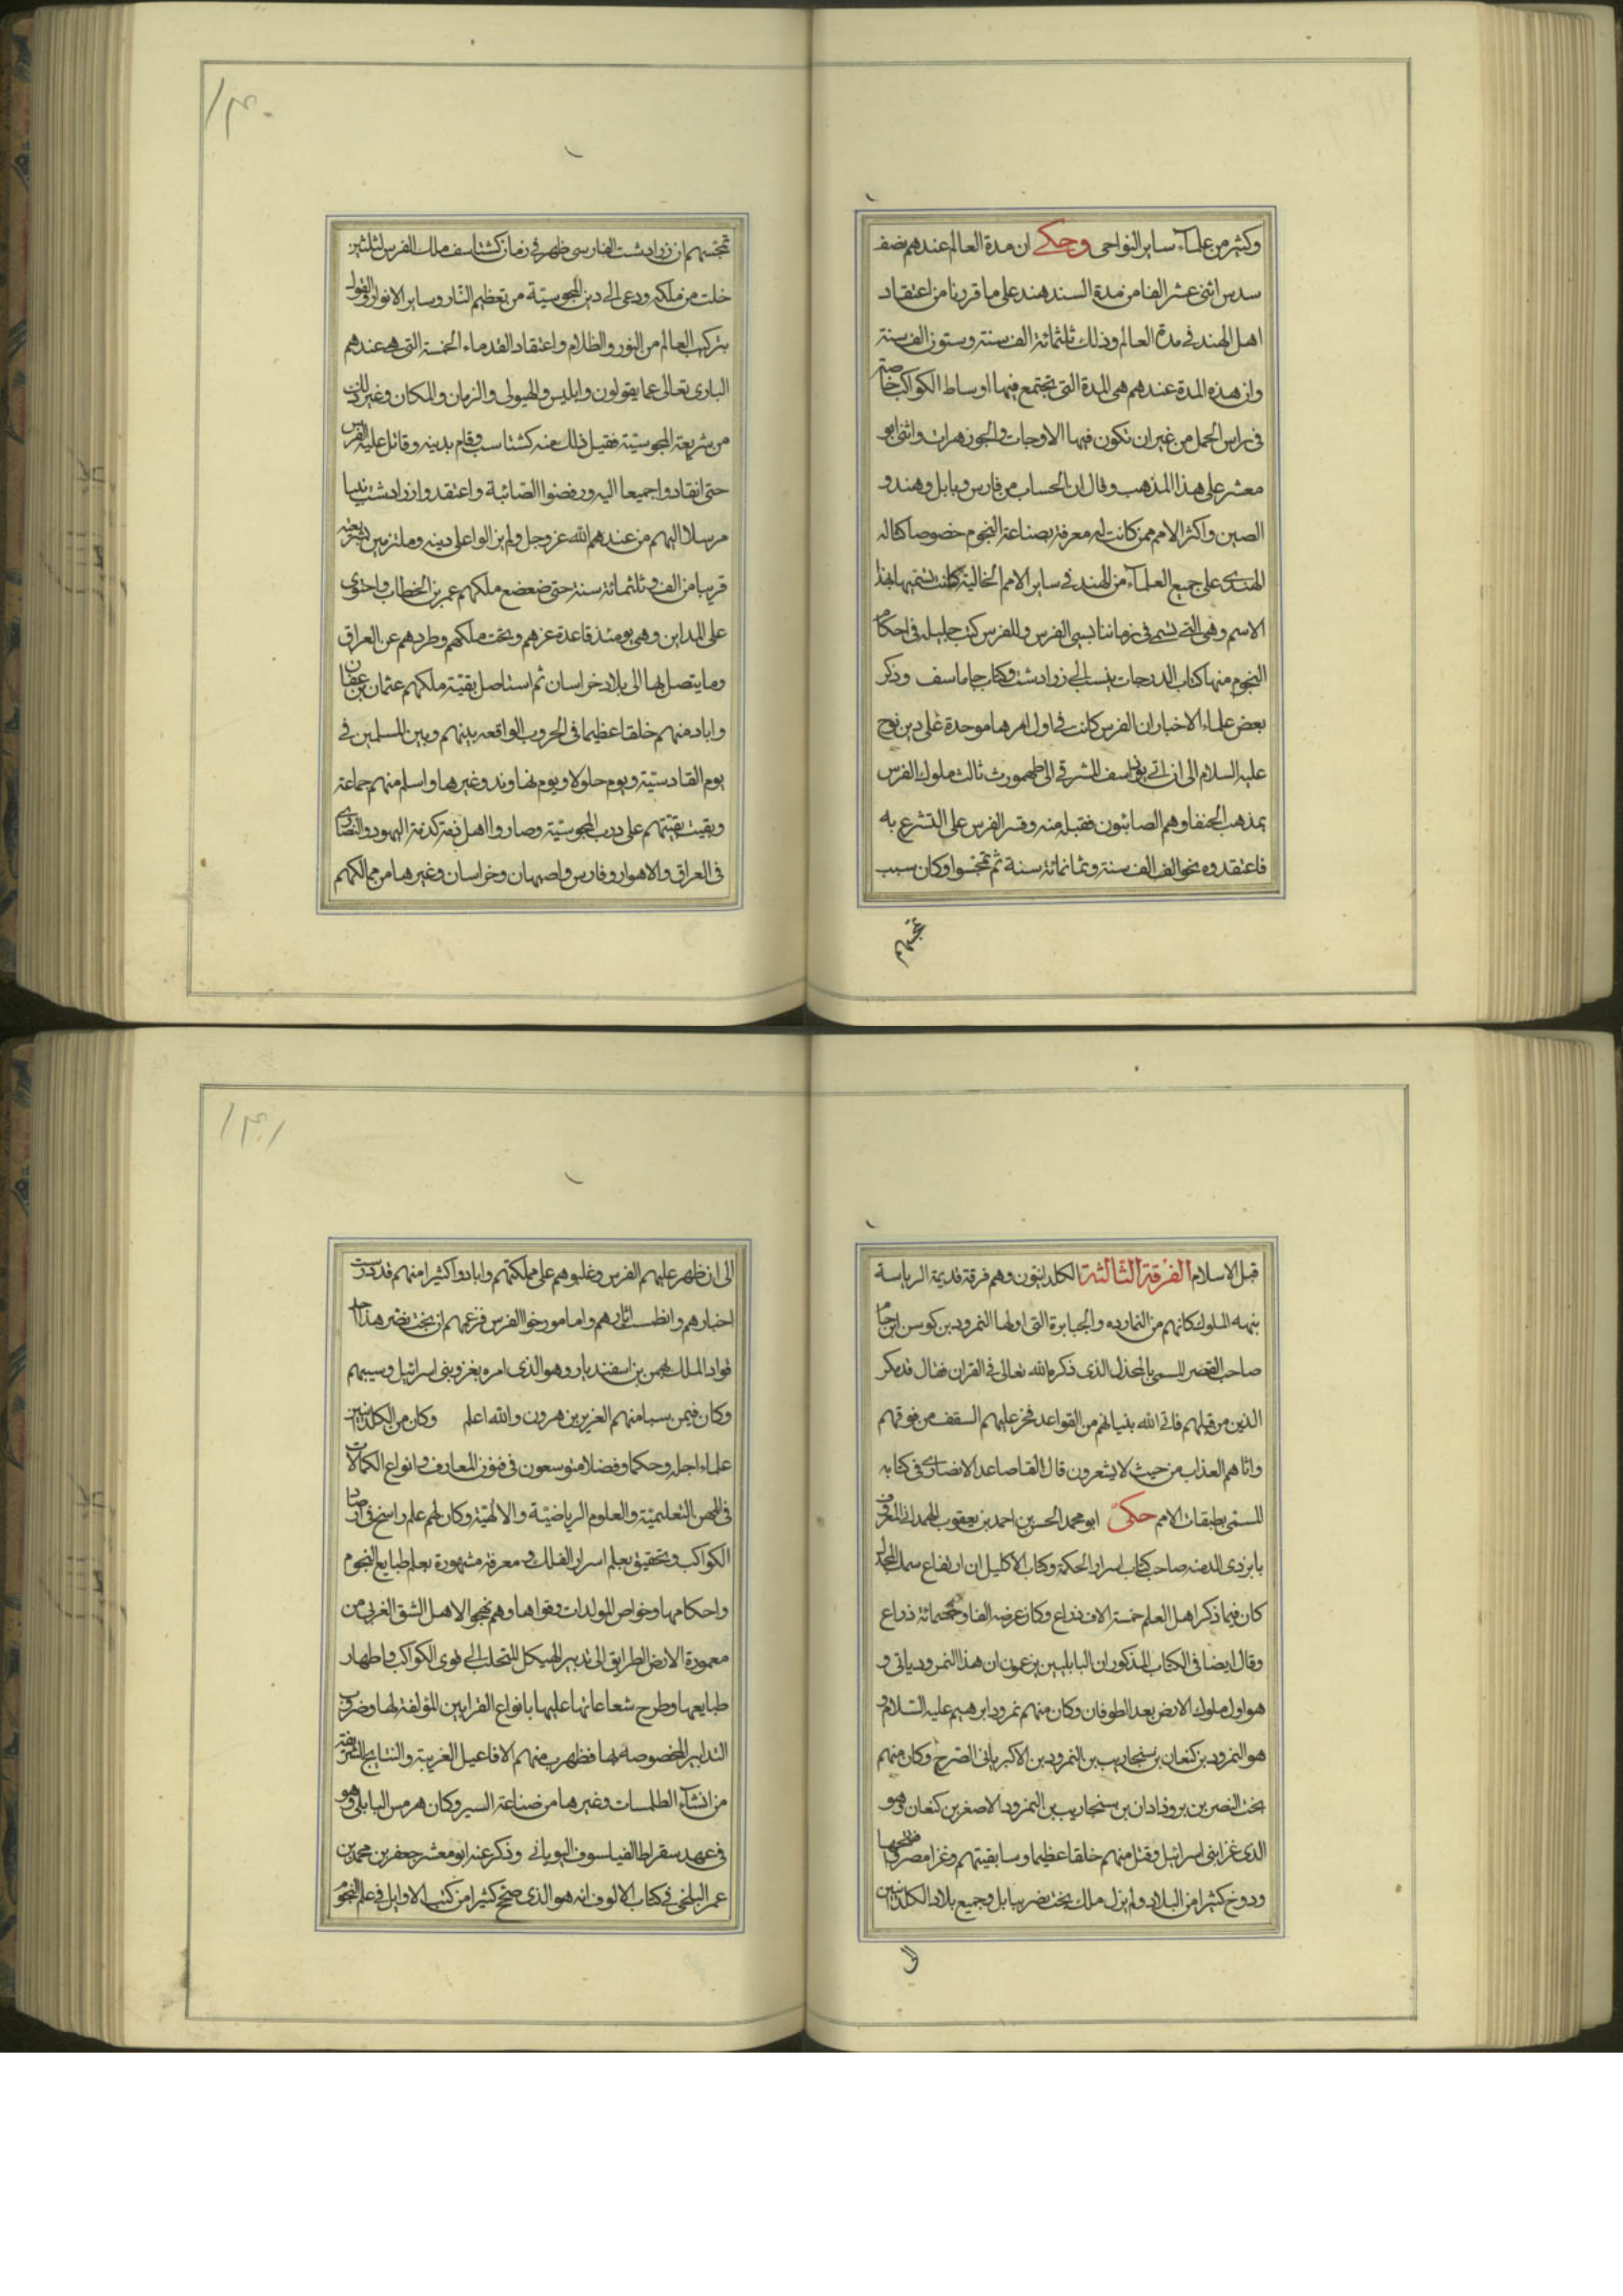 وكثير من علماء ساير النواحى وحكى ان مدة العالم عندهم نصف
سدس اثنى عشر الفا من مدة السند هند على ما قررنا من اعتقاد
اهل الهند فى مدة العالم وذلك ثلثمائة الف سنة وستون الف سنة
وان هذه المدة عندهم هى المدة التى تجتمع فيها اوساط الكواكب خاصة
فى راس الحمل من غير ان تكون فيها الاوجات والجوزهرات واثنى ابو
معشر على هذا المذهب وقال ان الحساب من فارس وبابل وهند و
الصين واكثر الامم ممن كانت له معرفة بصناعة النجوم خصوصا كناله
الهندى على جميع العلماء من الهند فى ساير الامم الخالية كانت تسميها بهذا
الاسم وهى التى تسمى فى زماننا بسنى الفرس وللفرس كتب جليلة فى احكام
النجوم منها كتاب الدرجات ينسب الى زرادشت وكتاب جاماسف وذكر
بعض علماء الاخبار ان الفرس كانت فى اول امرها موحدة على دين نوح
عليه السلام الى ان اتى بوداسف المشرقى الى طهمورث ثالث ملوك الفرس
بمذهب الحنفا وهم الصابئون فقبله منه وقسر الفرس على التشرع به
فاعتقدوه نحو الف الف سنة وثمانمائة سنة ثم تمجسوا وكان سبب
تمجسهم
١٣٠
تمجسهم ان زرادشت الفارسى ظهر فى زمان كشتاسف ملك الفرس لثلثين
خلت من ملكه ودعى الى دين المجوسيّة من تعظيم النّار وساير الانوار والقول
بتركيب العالم من النور والظلام واعتقاد القدماء الخمسة التى هى عندهم
البارى تعالى عما يقولون وابليس والهيولى والزمان والمكان وغير ذلك
من شريعة المجوسيّة فقبل ذلك منه كشتاسب وقام بدينه وقاتل عليه الفرس
حتى انقادوا جميعا اليه ورفضوا الصّائبة واعتقدوا زرادشت نبيا
مرسلا اليهم من عندهم الله عز وجل ولم يزالوا على دينه وملتزمين بشريعته
قريبا من الف وثلثمائة سنة حتى ضعضع ملكهم عمر بن الخطاب واحتوى
على المداين وهى يومئذ قاعدة عزهم وتخت ملكهم وطردهم عن العراق
وما يتصل بها الى بلاد خراسان ثم استاصل بقيّة ملكهم عثمان بن عفان
واباد منهم خلقا عظيما فى الحروب الواقعه بينهم وبين المسلمين فى
يوم القادسيّة ويوم حلولا ويوم نهاوند وغيرها واسلم منهم جماعة
وبقيت بقيّتهم على درب المجوسيّة وصاروا اهل ذمة كذمة اليهود والنصارى
فى العراق والاهواز وفارس واصبهان وخراسان وغيرها من ممالكهم
قبل الاسلام الفرقة الثالثة الكلدانيّون وهم فرقة قديمة الرياسة
نبهه الملوك كانهم من النمارده والجبابرة التى اولها النمرود بن كوس بن حام
صاحب القصر المسمى بالمجدل الذى ذكره الله تعالى فى القران فقال قد مكر
الذين من قبلهم فاتى الله بنيانهم من القواعد فخر عليهم السقف من فوقهم
واتاهم العذاب من حيث لا يشعرون قال القاصاعد الانصارى فى كتابه
المسمى بطبقات الامم حكى ابو محمد الحسن بن احمد بن يعقوب الهمدانى المعروف
بابن ذى الدمنه صاحب كتاب اسرار الحكمة وكتاب الاكليل ان ارتفاع سمك المجدل
كان فيما ذكر اهل العلم خمسة الاف ذراع وكان عرضه الفا وخمسمائة ذراع
وقال ايضا فى الكتاب المذكور ان البابليين يزعمون ان هذا النمرود بانى و
هو اول ملوك الارض بعد الطوفان وكان منهم نمرود ابرهيم عليه السّلام و
هو النمرود بن كنعان بن سنجاريب بن النمرود بن الاكبر بانى الصّرح وكان منهم
بخت النصر بن بروذادان بن سنجاريب بن النمرود الاصغر بن كنعان وهو
الذى غزا بنى اسرائيل وقتل منهم خلقا عظيما وسبا بقيتهم وغزا مصر وفتحها
ودوخ كثيرا من البلاد ولم يزل ملك بخت نصر ببابل وجميع بلاد الكلدانيين
الى
١٣١
الى ان ظهر عليهم الفرس وغلبوهم على مملكتهم وابادوا كثيرا منهم فدرست
اخبارهم وانطمست اثارهم واما مورخوا الفرس فزعمهم ان بخت نصر هذا احد
قواد الملك بهمن بن اسفنديار وهو الذى امره بغزو بنى اسرائيل وسبيهم
وكان فيمن سبا منهم العزير بن هرون والله اعلم وكان من الكلدانيين
علماء اجله وحكما وفضلا متوسعون فى فنون المعارف وانواع الكمالات
فى المهن التعليميّة والعلوم الرياضيّة والالهيّة وكان لهم علم راسخ فى ارصاد
الكواكب وتحقيق بعلم اسرار الفلك ومعرفة مشهورة بعلم طبايع النجوم
واحكامها وخواص المولدات وقواها وهم نهجوا لاهل الشق الغربى من
معمورة الارض الطريق الى تدبير الهيكل للتجلب الى قوى الكواكب واظهار
طبايعها وطرح شعاعاتها عليها بانواع القرابين المؤلفة لها وضروب
التدابير المخصوصه بها فظهرت منهم الافاعيل الغريبة والنتايج الشريفة
من انشاء الطلسمات وغيرها من صناعة السير وكان هرمس البابلى وهو
فى عهد سقراط الفيلسوف اليونانى وذكر عنه ابو معشر جعفر بن محمد بن
عمر البلخى فى كتاب الالوف انه هو الذى صحّح كثيرا من كتب الاوايل فى علم النجوم